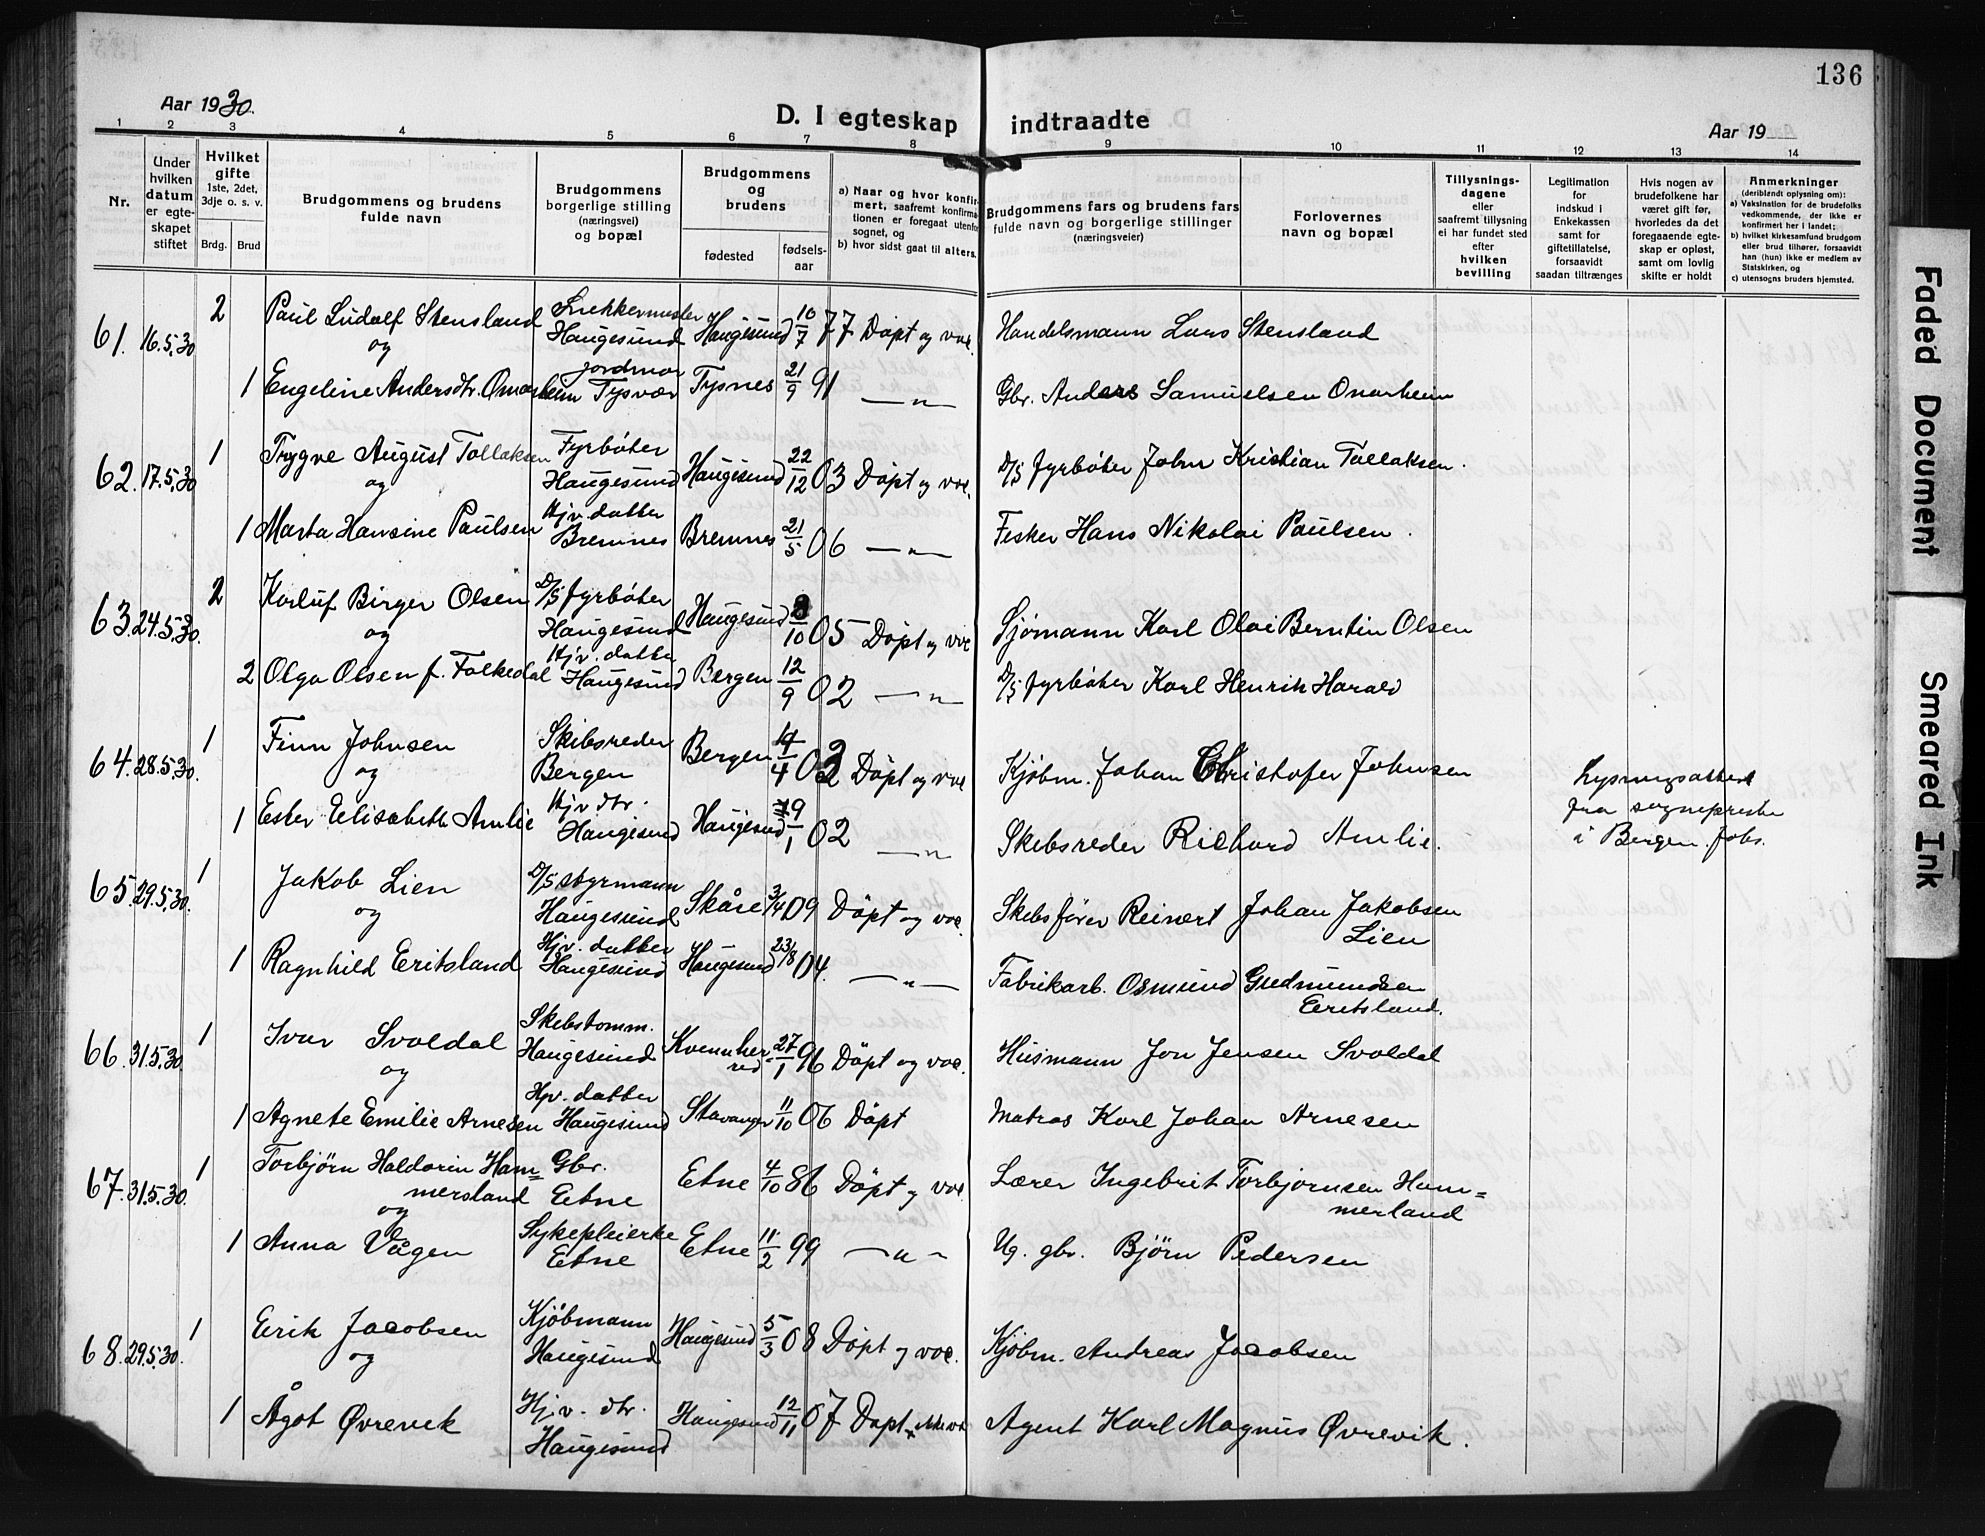 136
Aar 1930.
D. I egteskap indtraadte
Aar 19
1 2 3 4 5 6 7 8 9 10 11 12 13 14
Nr.
Under hvilken datum er egteskapet stiftet
Hvilket gifte
1ste, 2det, 3dje o. s. v.
Brdg. Brud
Brudgommens og brudens fulde navn
Brudgommens borgerlige stilling (næringsvei) og bopæl
Brudgommens og brudens
fødested
fødselsaar
a) Naar og hvor konfirmert, saafremt konfirmationen er foregaat utenfor sognet, og
b) hvor sidst gaat til alters.
Brudgommens fars og brudens fars fulde navn og borgerlige stillinger (næringsveier)
Forlovernes navn og bopæl
Tillysningsdagene eller saafremt tillysning ei har fundet sted efter hvilken bevilling
Legitimation for indskud i Enkekassen samt for giftetillatelse, forsaavidt saadan tiltrænges
Hvis nogen av brudefolkene har været gift før, hvorledes da det foregaaende egteskap er opløst, samt om lovlig skifte er holdt
Anmerkninger
(deriblandt oplysning om):
a) Vaksination for de brudefolks vedkommende, der ikke er konfirmert her i landet;
b) hvilket kirkesamfund brudgom eller brud tilhører, forsaavidt han (hun) ikke er medlem av Statskirken, og
c) utensogns bruders hjemsted.
61. 16.5.30 2 Paul Ludolf Stensland Haugesund Haugesund 10/7 77 Döpt og vac. Handelsmann Lars Stensland
og
1 Engeline Andersdtr. Onarheim jordmor Tysvær Tysnes 21/9 91 —"— Gbr. Anders Samuelsen Onarheim
62. 17.5.30 1 Trygve August Tollaksen Fyrbøter Haugesund Haugesund 22/12 03 Döpt og vac. D/S fyrbøter John Kristian Tollaksen.
og
1 Marta Hansine Paulsen Hjv. datter Bremnes Bremnes 21/5 06 —"— Fisker Hans Nikolai Paulsen.
63. 24.5.30. 2 Karluf Birger Olsen D/S fyrbøter Haugesund Haugesund 8/10 05 Döpt og vac Sjømann Karl Olai Berntin Olsen
og
2 Olga Olsen f. Falkedal Hjv. datter Haugesund Bergen 12/9 02 —"— D/S fyrbøter Karl Henrik Harald
64. 28.5.30. 1 Finn Johnsen Skibsreder Bergen Bergen 14/4 02 Döpt og vac Kjøbm. Johan Christofer Johnsen
og
1 Ester Elisabeth Amlie Hjv dtr. Haugesund Haugesund 19/1 02 —"— Skibsreder Richard Amlie.
Lysningsattest
fra sogneprest
i Bergen. Johs.
65. 29.5.30. 1 Jakob Lien D/S styrmann Haugesund Skåre 3/4 09 Döpt og vac. Skibsfører Reinert Johan Jakobsen
Lien
og
1 Ragnhild Eritsland Hjv. datter Haugesund Haugesund 23/8 04. —"— Fabrikarb. Osmund Gudmundsen
Eritsland.
66. 31.5.30. 1 Ivar Svoldal Skibstømm. Haugesund Kvennherred 27/1 96 Döpt og vac. Husmann Jon Jensen Svoldal
og
1 Agnete Emilie Arnesen Hjv. datter Haugesund Stavanger 11/10 06 Döpt Matros Karl Johan Arnesen
67. 31.5.30. 1 Torbjörn Haldorin Ham=
mersland Gbr. Etne Etne 4/10 86 Döpt og vac Lærer Ingebrit Torbjörnsen Ham=
merland
og
1 Anna Vågen Sykepleierske Etne Etne 11/2 99 —"— Ug. gbr. Bjørn Pedersen
68. 29.5.30. 1 Erik Jacobsen Kjøbmann Haugesund Haugesund 5/3 08 Döpt og vac. Kjøbm. Andreas Jacobsen
og
1 Ågot Øvrevik Hj.v. dtr. Haugesund Haugesund 12/11 07 Döpt, ikke vac Agent Karl Magnus Øvrevik.
Faded Document
Smeared Ink